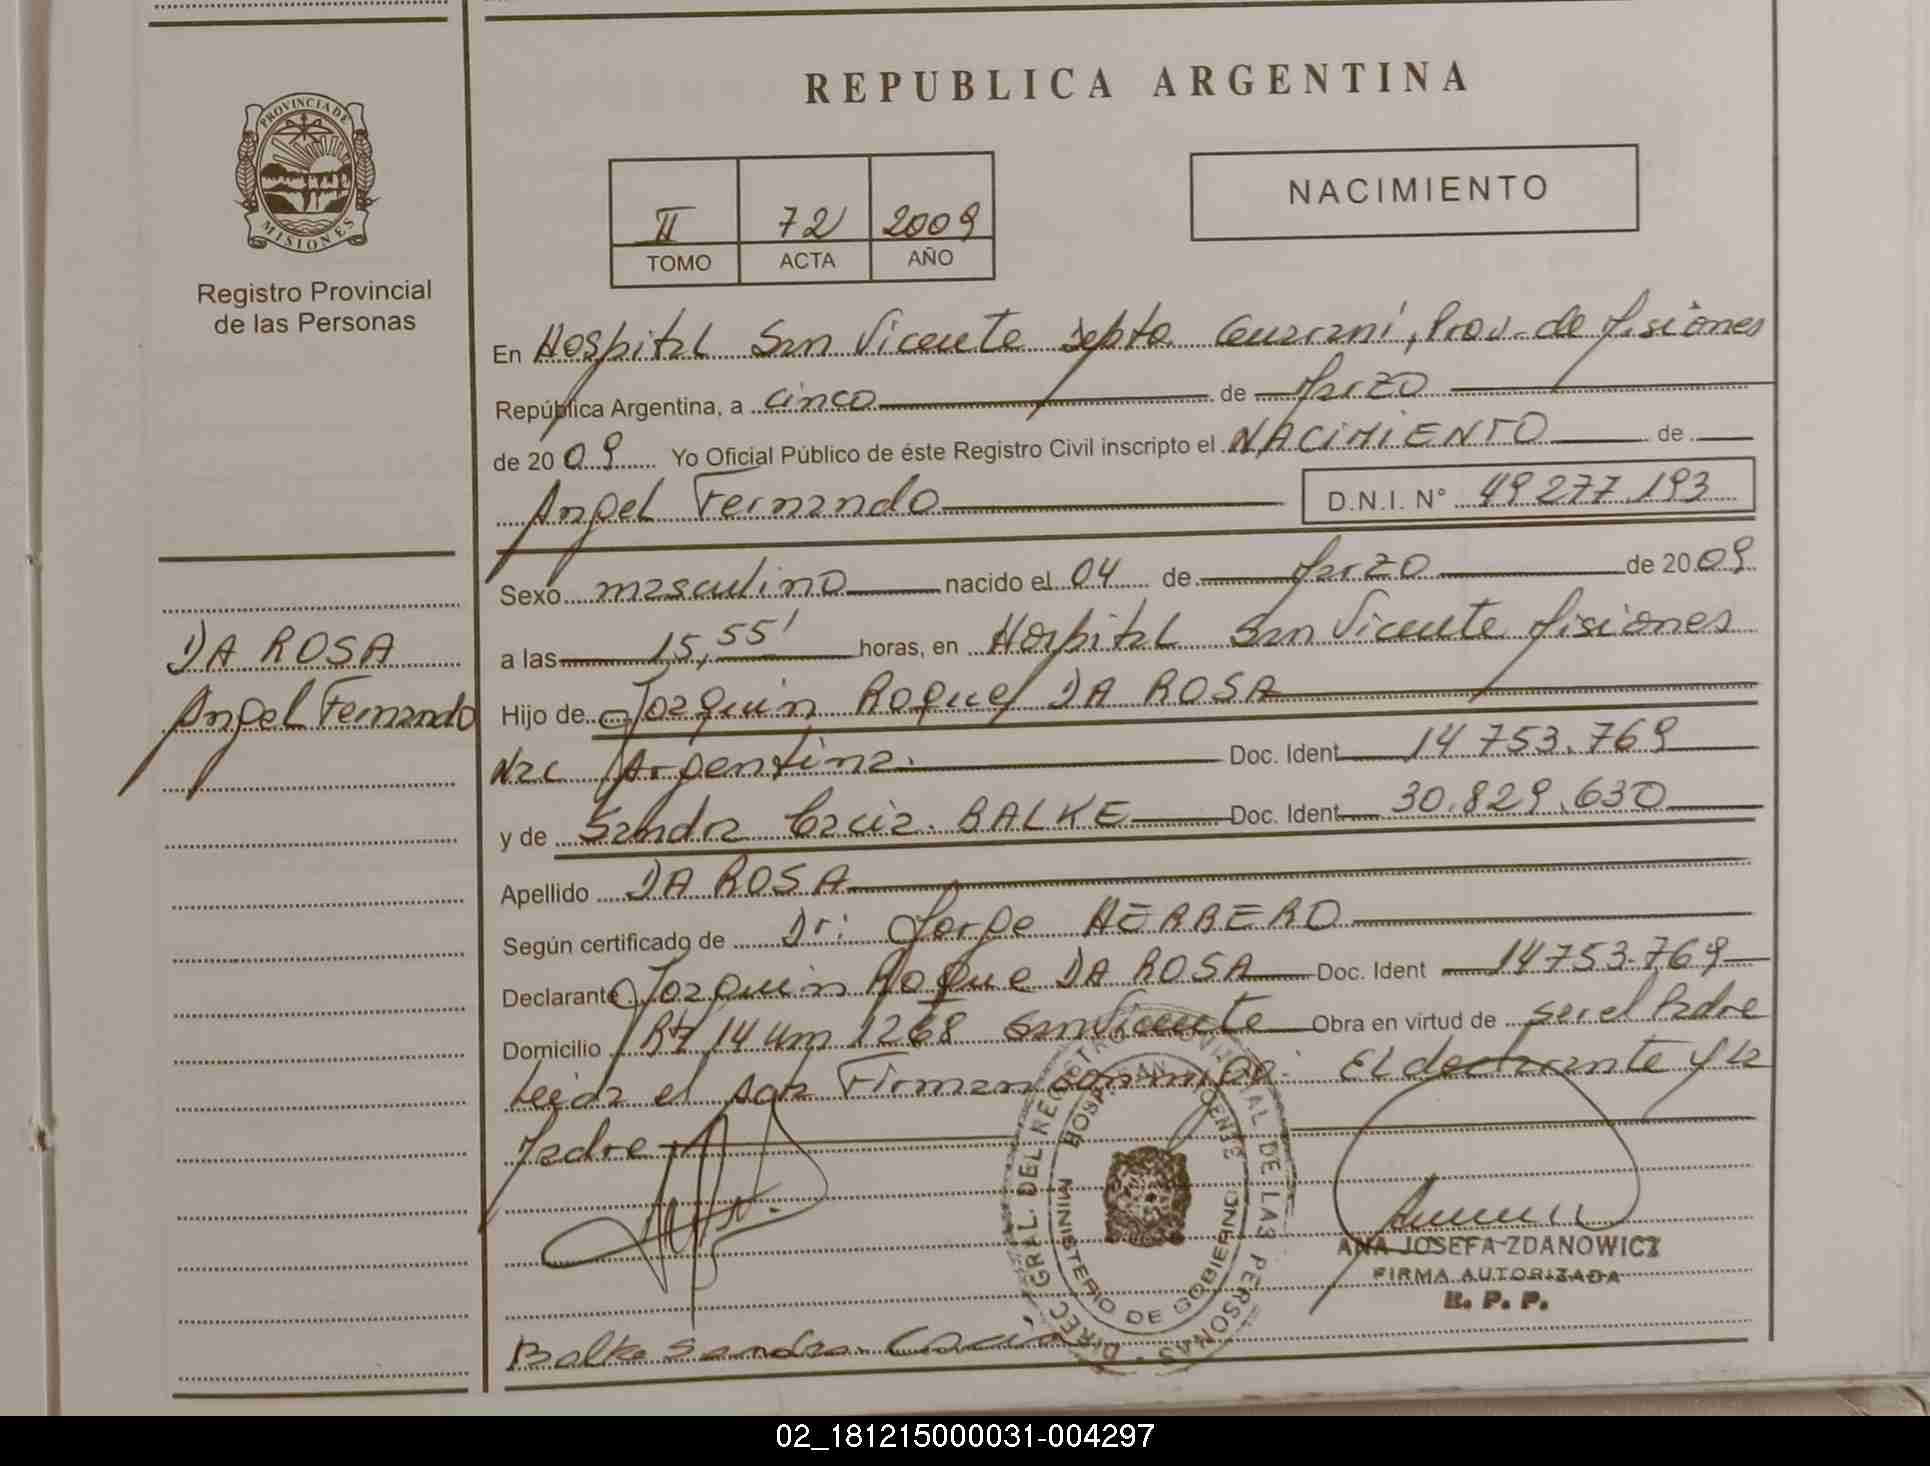 PROVINCIA DE
MISIONES
Registro Provincial
de las Personas
DA ROSA
Angel Fernando
REPUBLICA ARGENTINA
II 72 2009
TOMO ACTA AÑO
NACIMIENTO
En Hospital San Vicente Depto Guarani, Prov. de Misiones
República Argentina, a cinco de Marzo
de 2009 Yo Oficial Público de éste Registro Civil inscripto el NACIMIENTO de
Angel Fernando D.N.I. N° 49277.193
Sexo masculino nacido el 04 de Marzo de 2009
a las 15,55' horas, en Hospital San Vicente Misiones
Hijo de Joaquin Roque DA ROSA
Nac Argentina. Doc. Ident 14753.769
y de Sandra BALKE Doc. Ident 30.829.630
Apellido DA ROSA
Según certificado de Dr: Jorge HERRERO
Declarante Joaquin Roque DA ROSA Doc. Ident 14753.769
Domicilio Rta 14 Km 1268 San Vicente Obra en virtud de ser el Padre
Leida el Acta Firman conmigo: El declarante y la
Madre
DIREC. GRAL. DEL REGISTRO PROVINCIAL DE LAS PERSONAS
HOSP. SAN VICENTE
MINISTERIO DE GOBIERNO
ANA JOSEFA ZDANOWICZ
FIRMA AUTORIZADA
R. P. P.
Balke Sandra
02_181215000031-004297